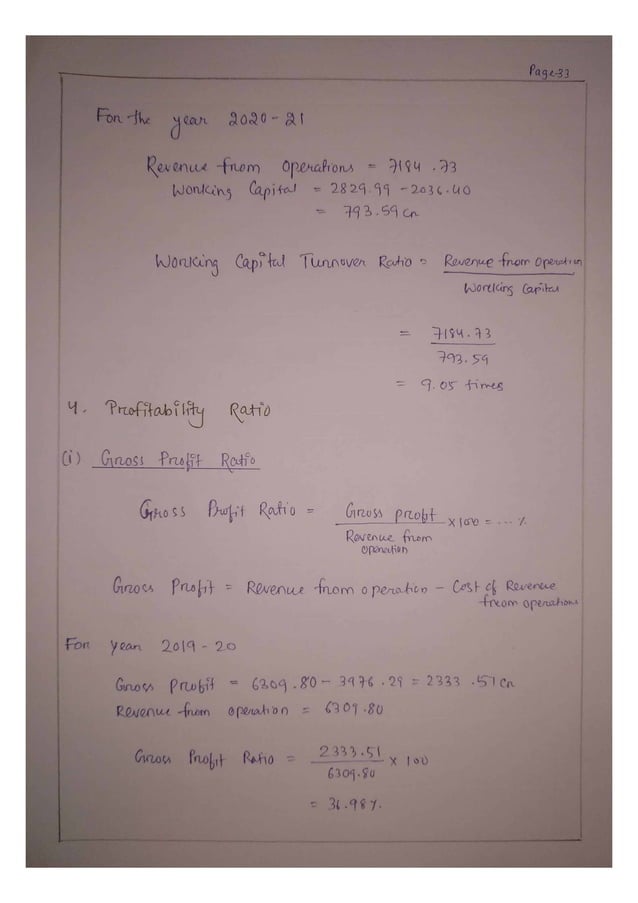 Page-33
For the year 2020-21
Revenue from Operations = 7184.73
Working Capital = 2829.99 - 2036.40
= 793.59 cr
Working Capital Turnover Ratio = Revenue from operation
Working Capital
= 7184.73
793.59
= 9.05 times
4. Profitability Ratio
(i) Gross Profit Ratio
Gross Profit Ratio = Gross profit x 100 = ... %
Revenue from
operation
Gross Profit = Revenue from operation - Cost of Revenue
from operations
For year 2019-20
Gross Profit = 6309.80 - 3976.29 = 2333.51 cr
Revenue from operation = 6309.80
Gross Profit Ratio = 2333.51 x 100
6309.80
= 36.98 %.